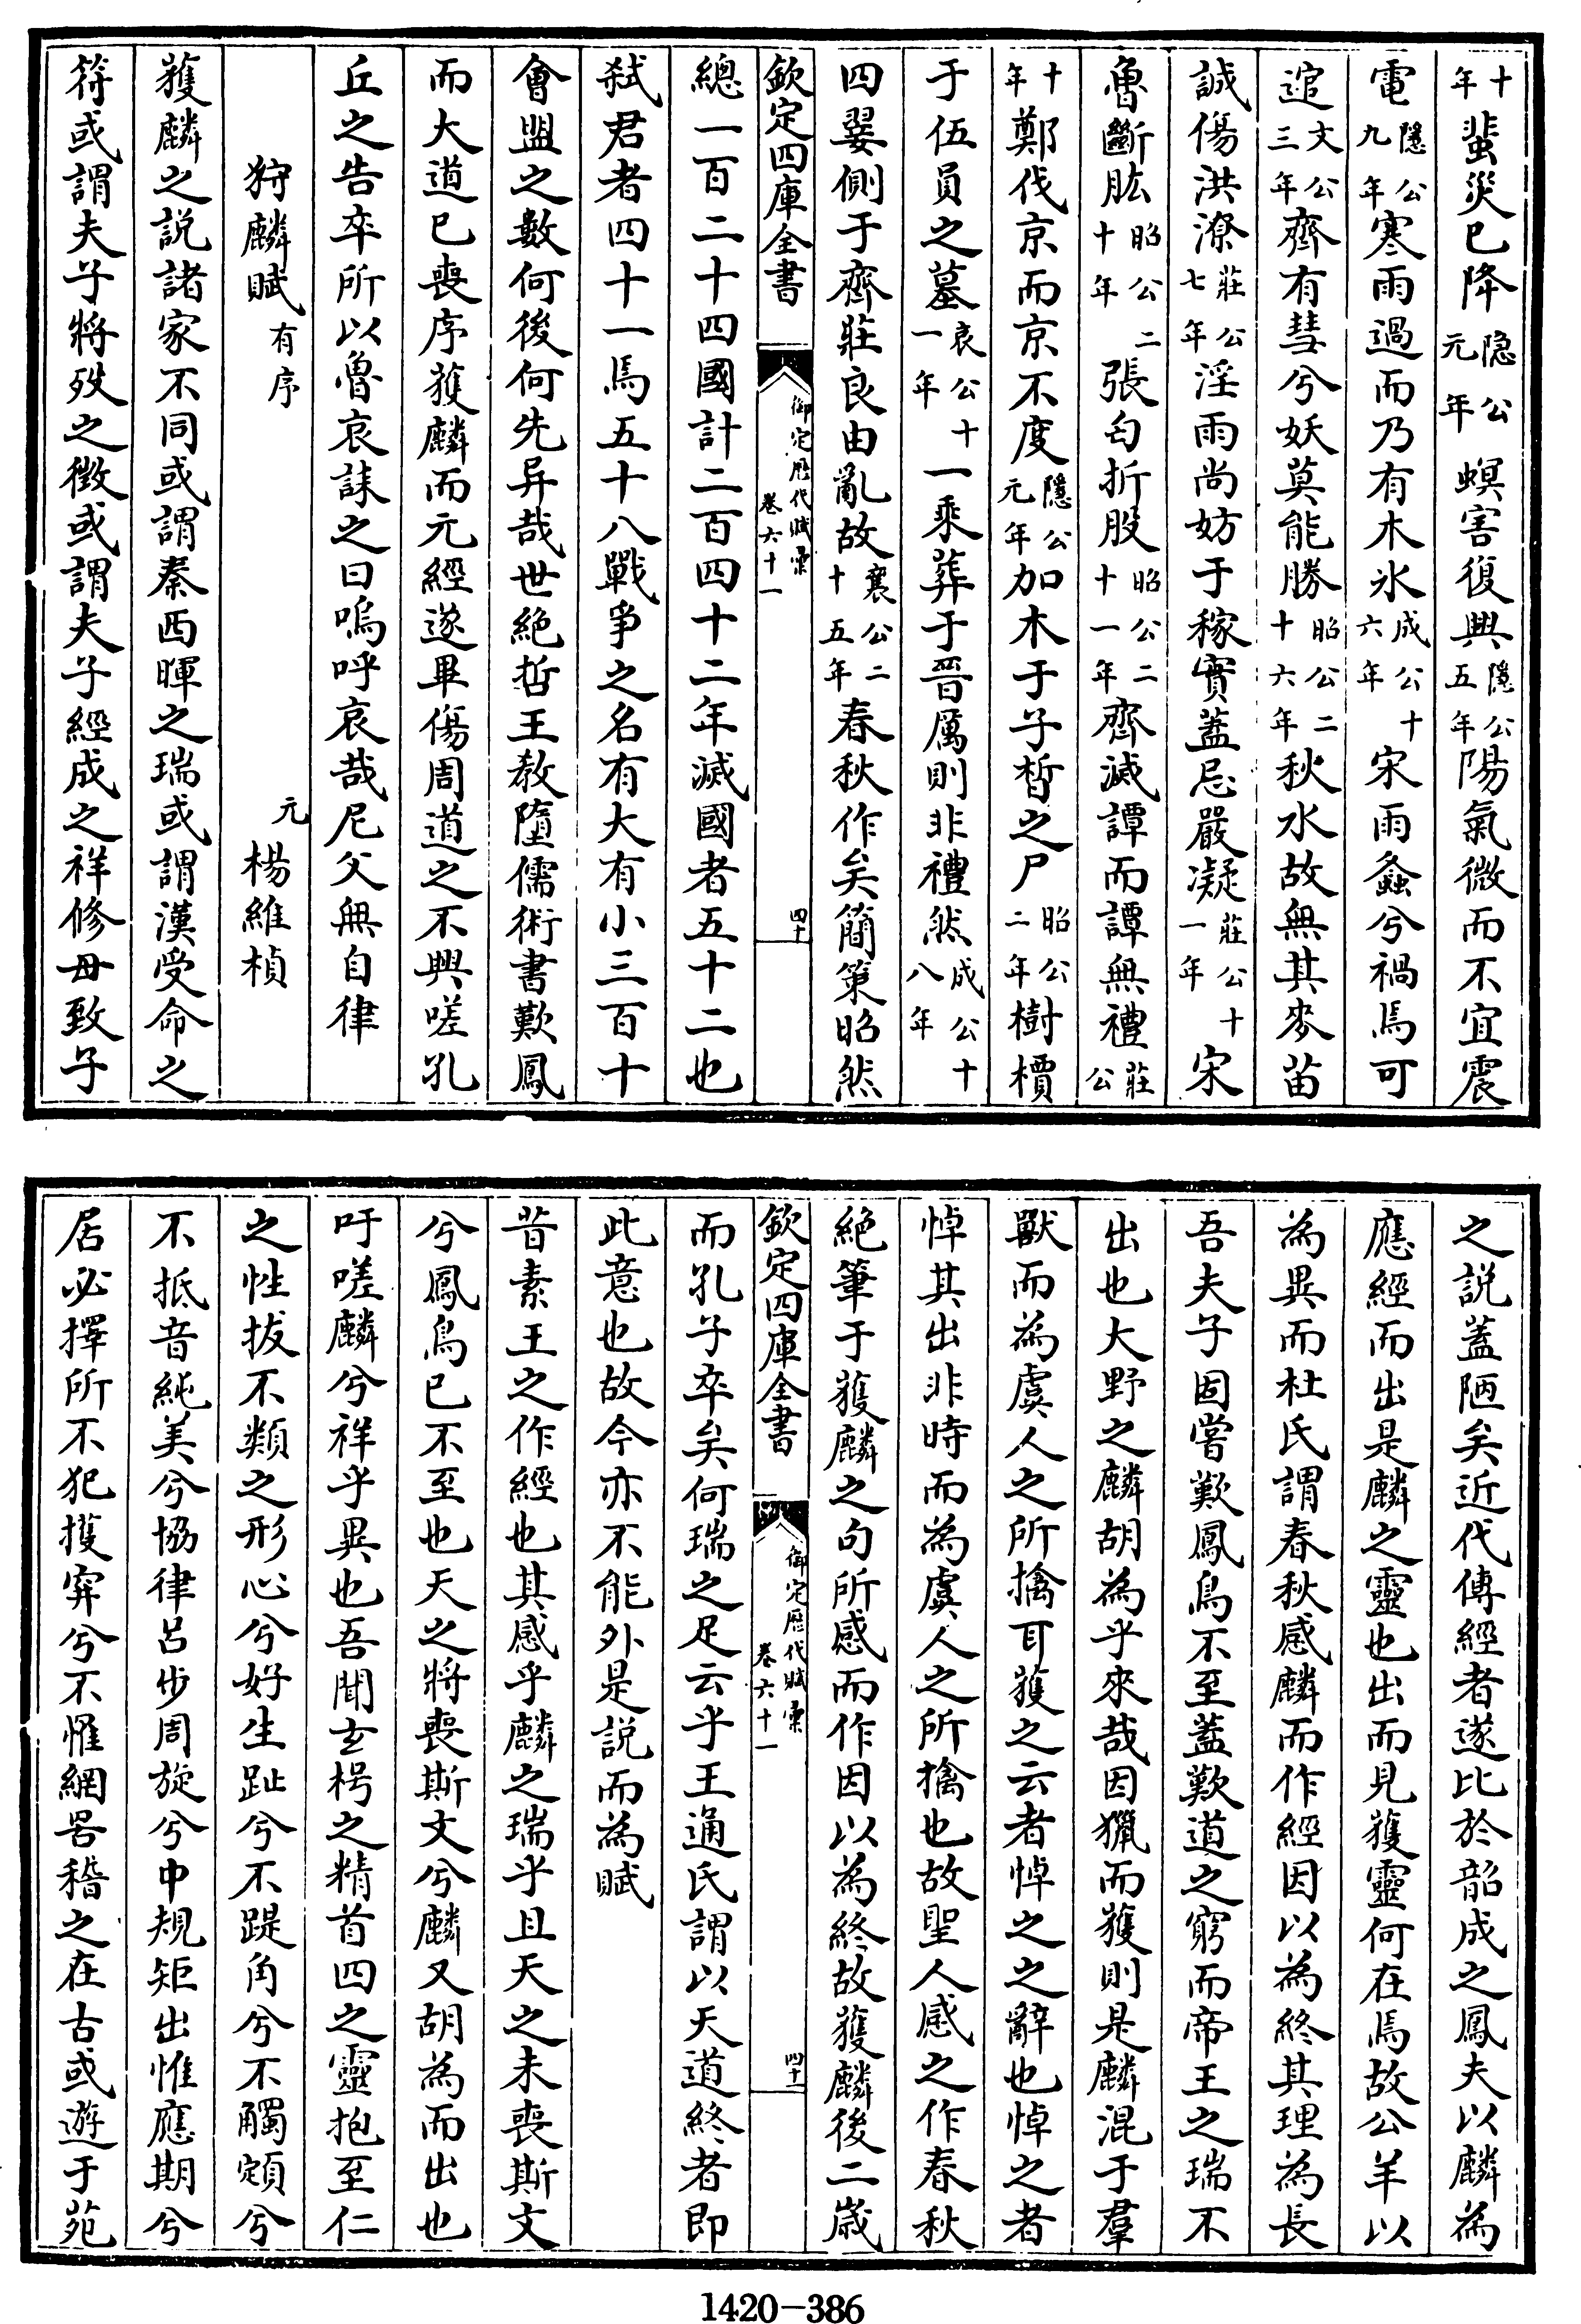 十年蜚災已降隐公元年螟害復興隱公五年陽氣微而不宜震
電隱公九年寒雨過而乃有木氷成公十六年宋雨螽兮禍馬可
逭文公三年齊有彗兮妖莫能勝昭公二十六年秋水故無其麥苗
誠傷洪潦莊公七年淫雨尚妨于稼實蓋忌嚴凝莊公十一年宋
魯斷肱昭公二十年張匄折股昭公二十一年齊滅譚而譚無禮莊公
十年鄭伐京而京不度隱公元年加木于子晳之尸昭公二年樹檟
于伍員之墓哀公十一年一乘葬于晉厲則非禮然成公十八年
四翣側于齊莊良由亂故襄公二十五年春秋作矣簡策昭然
欽定四庫全書 御定歷代賦彚 卷六十一 四十
總一百二十四國計二百四十二年滅國者五十二也
弑君者四十一馬五十八戰爭之名有大有小三百十
會盟之數何後何先异哉世絶哲王教墮儒術書歎鳳
而大道已喪序獲麟而元經遂畢傷周道之不興嗟孔
丘之告卒所以魯哀誄之曰嗚呼哀哉尼父無自律
狩麟賦有序 元 楊維楨
獲麟之說諸家不同或謂秦西暉之瑞或謂漢受命之
符或謂夫子將歿之徵或謂夫子經成之祥修母致子
之說蓋陋矣近代傅經者遂比於韶成之鳳夫以麟為
應經而出是麟之靈也出而見獲靈何在焉故公羊以
為異而杜氏謂春秋感麟而作經因以為終其理為長
吾夫子固嘗歎鳳鳥不至蓋歎道之窮而帝王之瑞不
出也大野之麟胡為乎來哉因獵而獲則是麟混于羣
獸而為虞人之所擒耳獲之云者悼之之辭也悼之者
悼其出非時而為虞人之所擒也故聖人感之作春秋
絶筆于獲麟之句所感而作因以為終故獲麟後二歲
欽定四庫全書 御定歷代賦彚 卷六十一 四十一
而孔子卒矣何瑞之足云乎王通氏謂以天道終者即
此意也故今亦不能外是說而為賦
昔素王之作經也其感乎麟之瑞乎且天之未喪斯文
兮鳳鳥已不至也天之將喪斯文兮麟又胡為而出也
吁嗟麟兮祥乎異也吾聞玄枵之精首四之靈抱至仁
之性拔不類之形心兮好生趾兮不踶角兮不觸頞兮
不抵音純美兮協律呂步周旋兮中規矩出惟應期兮
居必擇所不犯擭穽兮不罹網罟稽之在古或遊于苑
1420-386